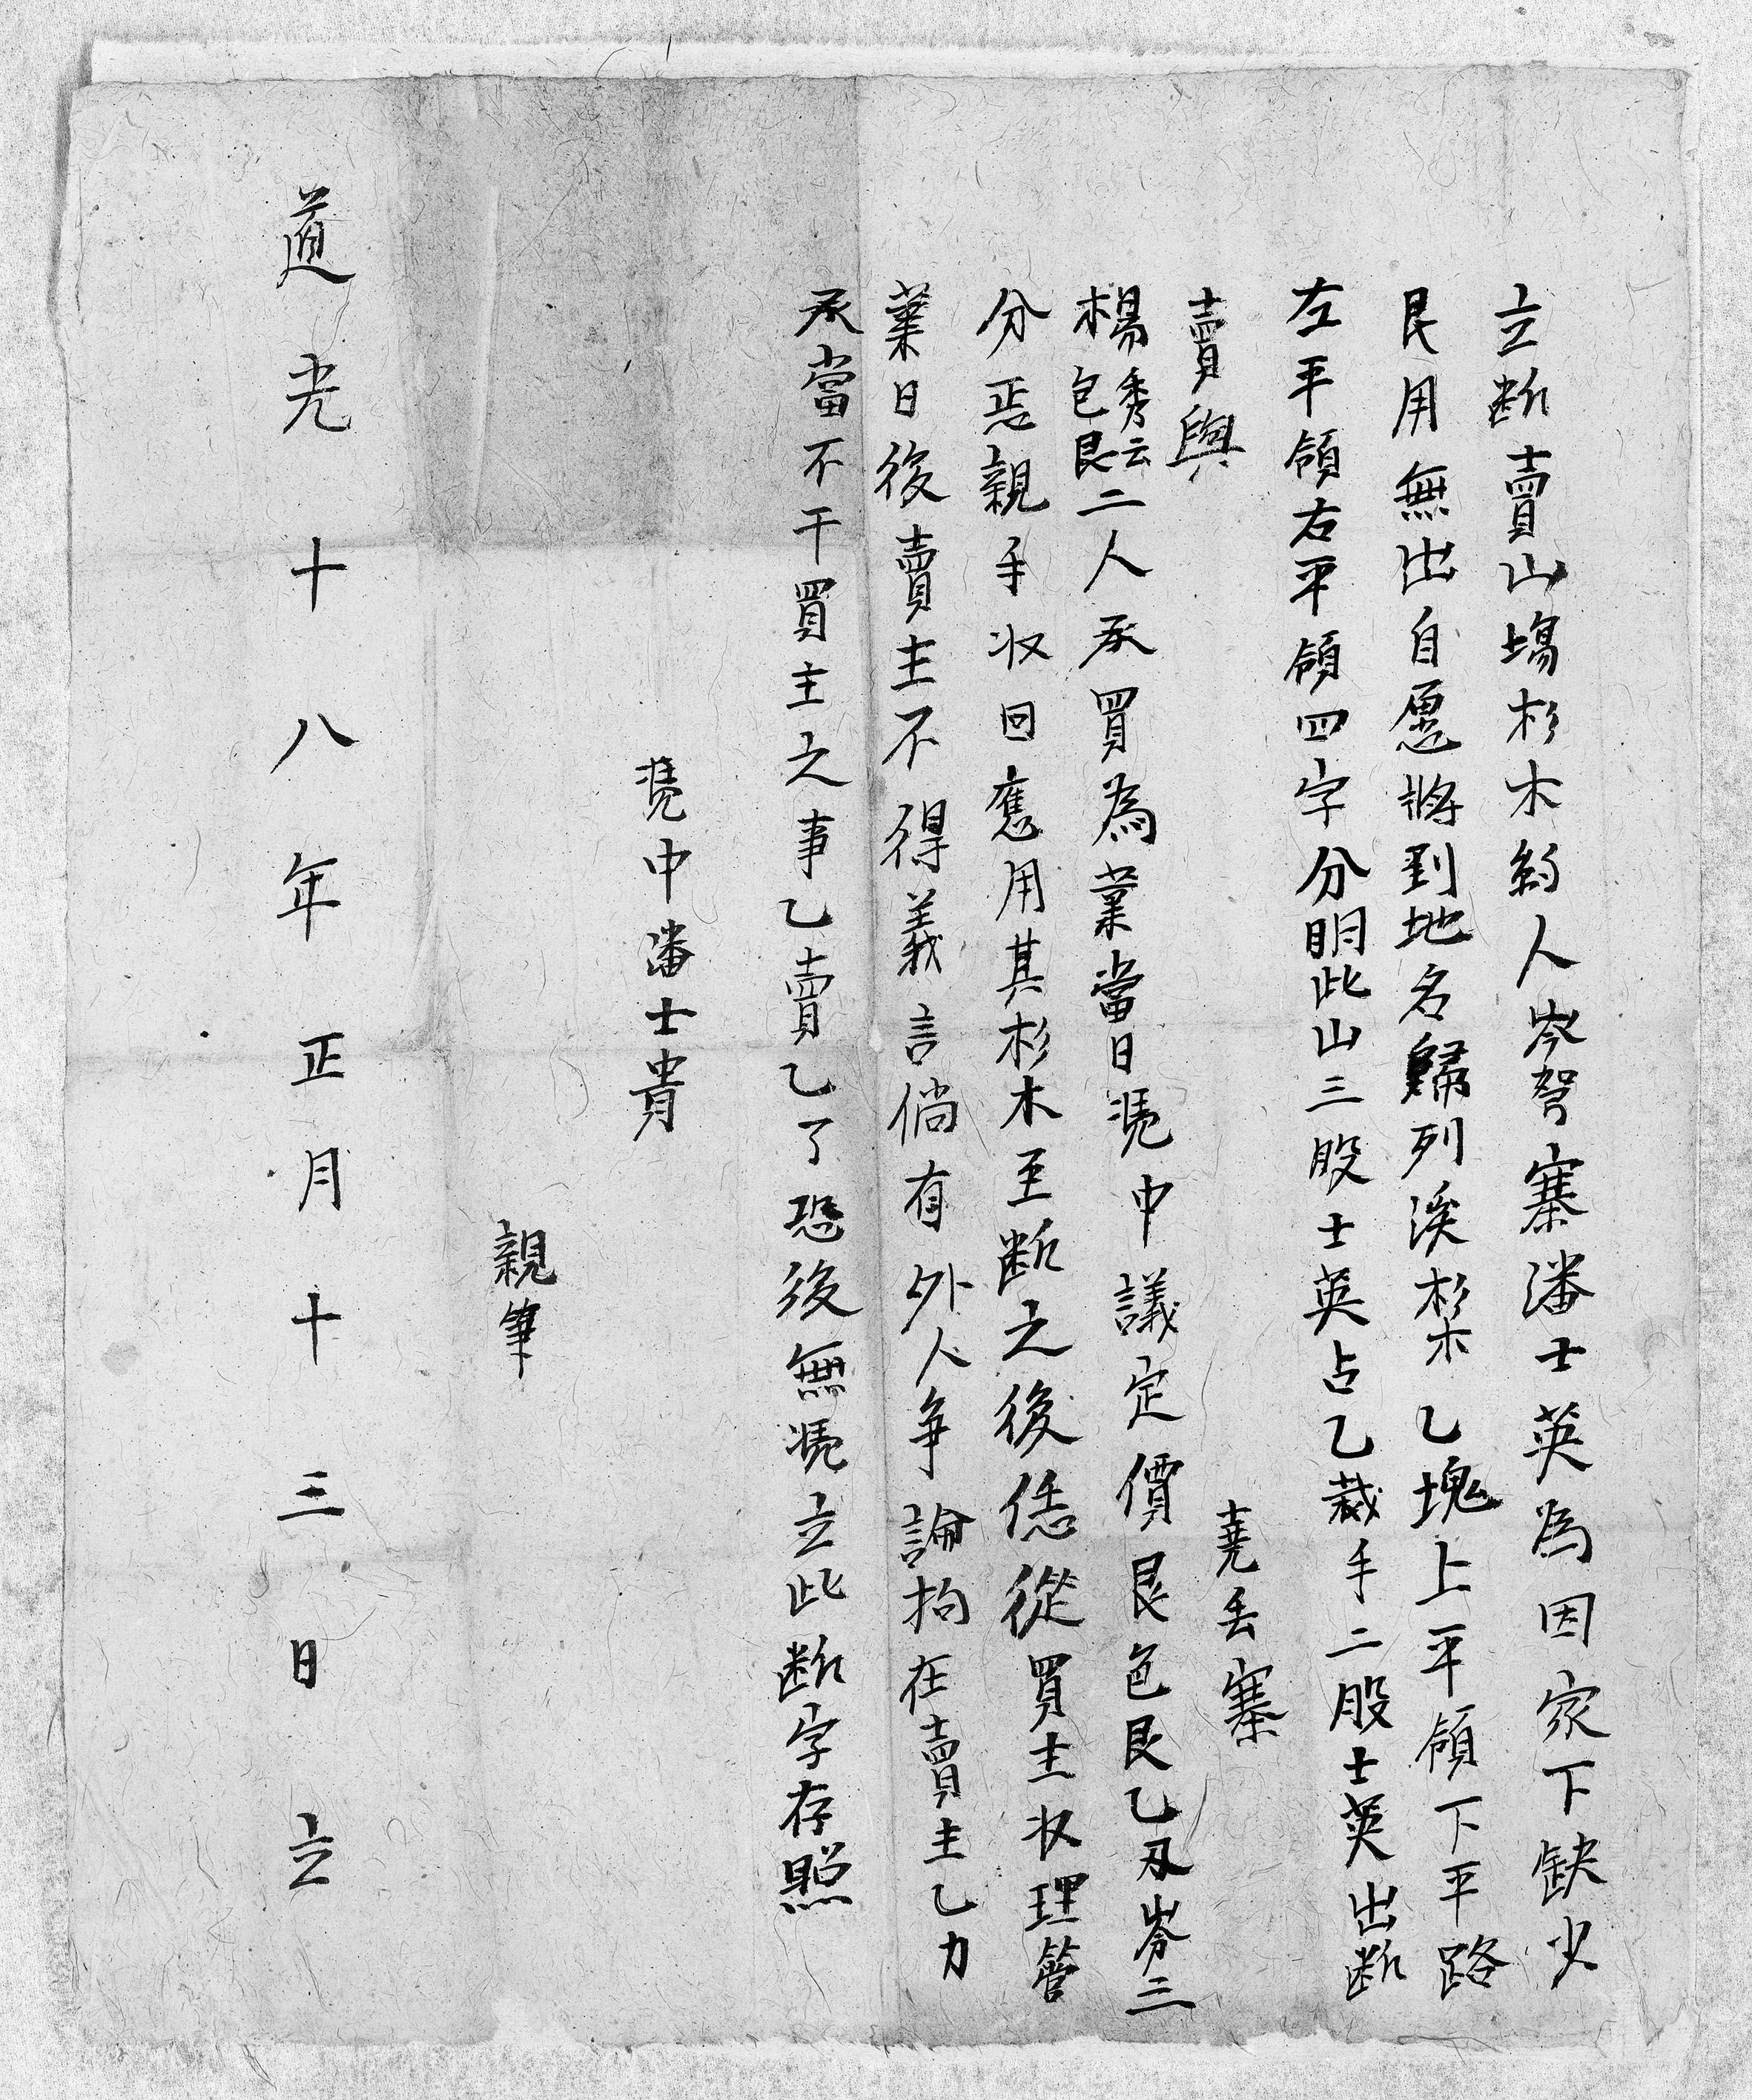 立断賣山塲杉木約人岑弩寨潘士英為因家下缺少
艮用無出自愿將到地名歸列溪杉木乙塊上平領下平路
左平領右平領四字分明此山三股士英占乙栽手二股士英出断
賣與堯丢寨
楊秀云包艮二人承買為業當日凴中議定價艮色艮乙刄岑三
分恧親手收回應用其杉木至断之後恁從買主收理管
業日後賣主不得義言倘有外人争論拘在賣主乙力
承當不干買主之事乙賣乙了恐後無凴立此断字存照
凴中潘士貴
親筆
道光十八年正月十三日立